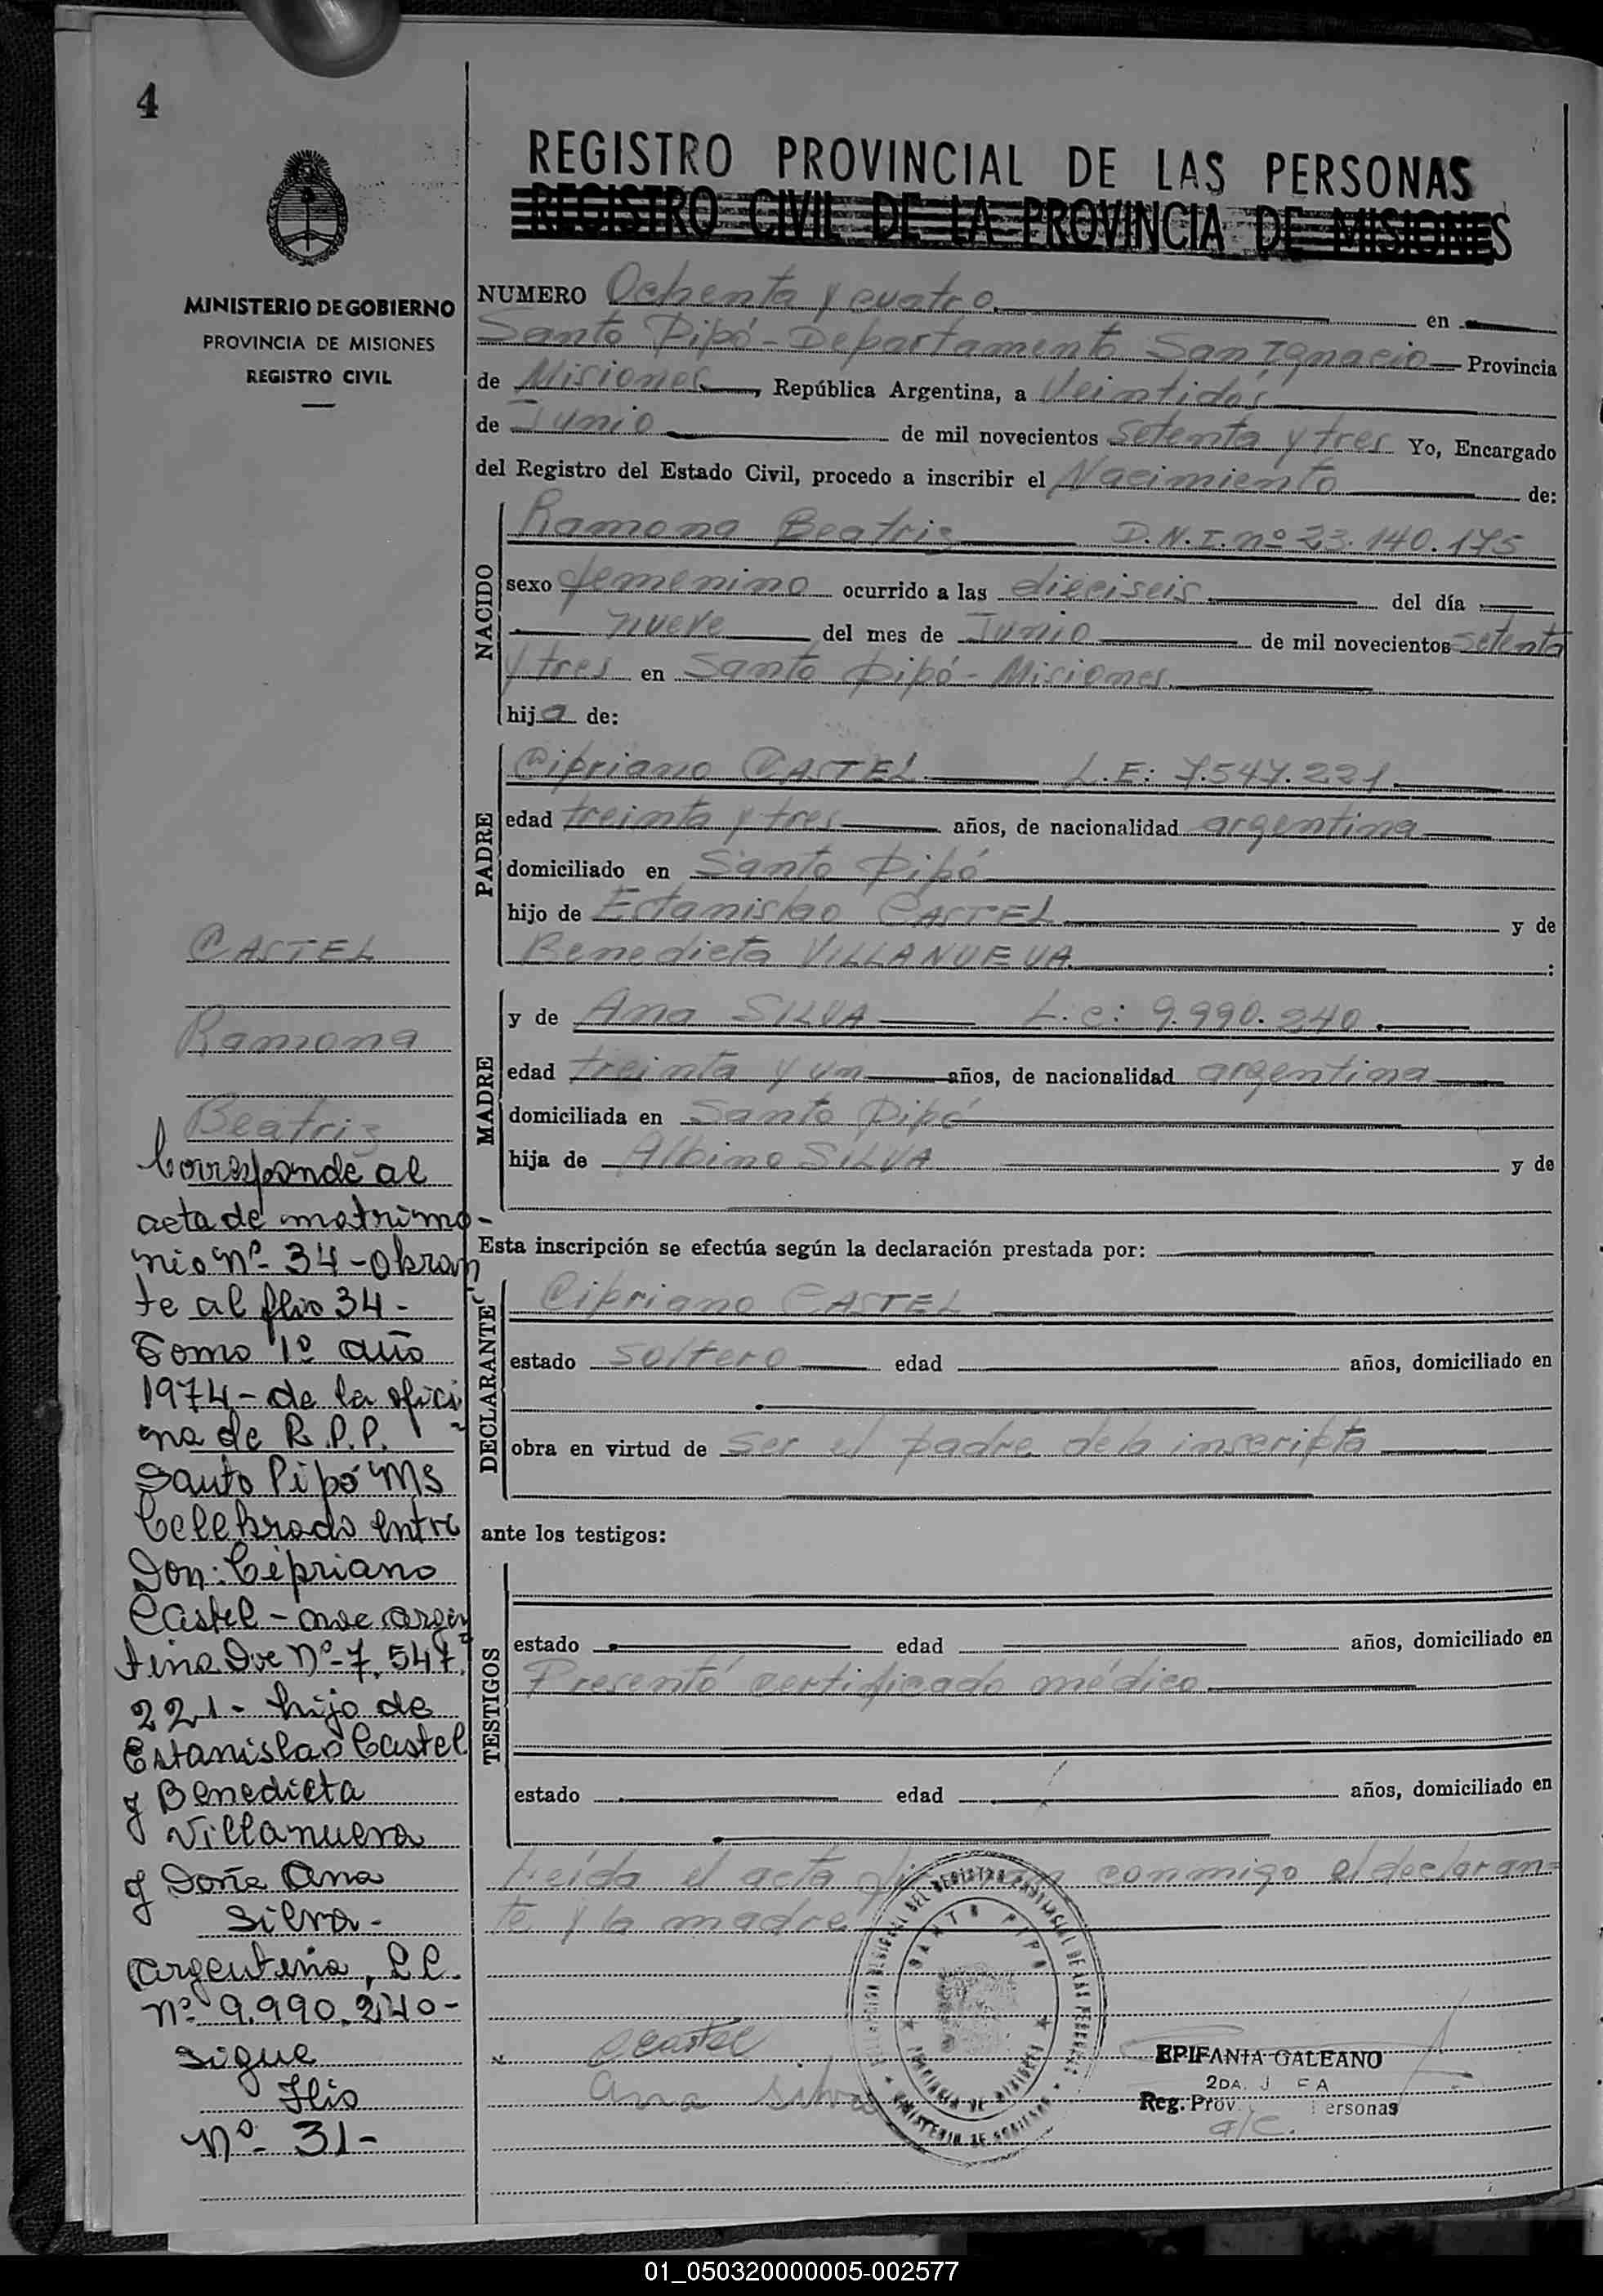 4
MINISTERIO DE GOBIERNO
PROVINCIA DE MISIONES
REGISTRO CIVIL
REGISTRO PROVINCIAL DE LAS PERSONAS
REGISTRO CIVIL DE LA PROVINCIA DE MISIONES
NUMERO Ochenta y cuatro en
Santo Pipó - Departamento San Ignacio - Provincia
de Misiones, República Argentina, a Veintidós
de Junio de mil novecientos setenta y tres Yo, Encargado
del Registro del Estado Civil, procedo a inscribir el Nacimiento de:
NACIDO
Ramona Beatriz D.N.I. nº 23.140.175
sexo femenino ocurrido a las dieciseis del día
nueve del mes de Junio de mil novecientos setenta
y tres en Santo Pipó - Misiones
hija de:
PADRE
Cipriano CASTEL L.E: 7.547.221
edad treinta y tres años, de nacionalidad argentina
domiciliado en Santo Pipó
hijo de Estanislao CASTEL y de
Benedicta VILLANUEVA :
MADRE
y de Ana SILVA L.C: 9.990.240
edad treinta y un años, de nacionalidad argentina
domiciliada en Santo Pipó
hija de Albino SILVA y de
Esta inscripción se efectúa según la declaración prestada por:
DECLARANTE
Cipriano CASTEL
estado soltero edad años, domiciliado en
obra en virtud de ser el padre de la inscripta
ante los testigos:
TESTIGOS
estado edad años, domiciliado en
Presentó certificado médico
estado edad años, domiciliado en
Leída el acta conmigo el declaran-
te y la madre
CCastel
Ana Silva
SANTO PIPO
PROVINCIA DE MISIONES
MINISTERIO DE GOBIERNO
EPIFANIA GALEANO
2DA. J
Reg. Prov ersonas
a/c.
CASTEL
Ramona
Beatriz
Corresponde al
acta de matrimo-
nio Nº 34 - Obran
te al flio 34 -
Tomo 1º año
1974 - de la ofici
na de R.P.P.
Santo Pipó Ms
Celebrado entre
Don: Cipriano
Castel - nac argen
tina Dve Nº 7.547.
221 - hijo de
Estanislao Castel
y Benedicta
Villanueva
y Doña Ana
Silva -
argentina, L.C.
Nº 9.990.240 -
Sigue
Flio
Nº 31 -
01_050320000005-002577